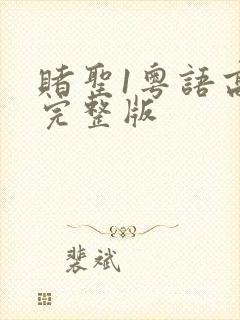 賭聖1粵語高
完整版
裴斌